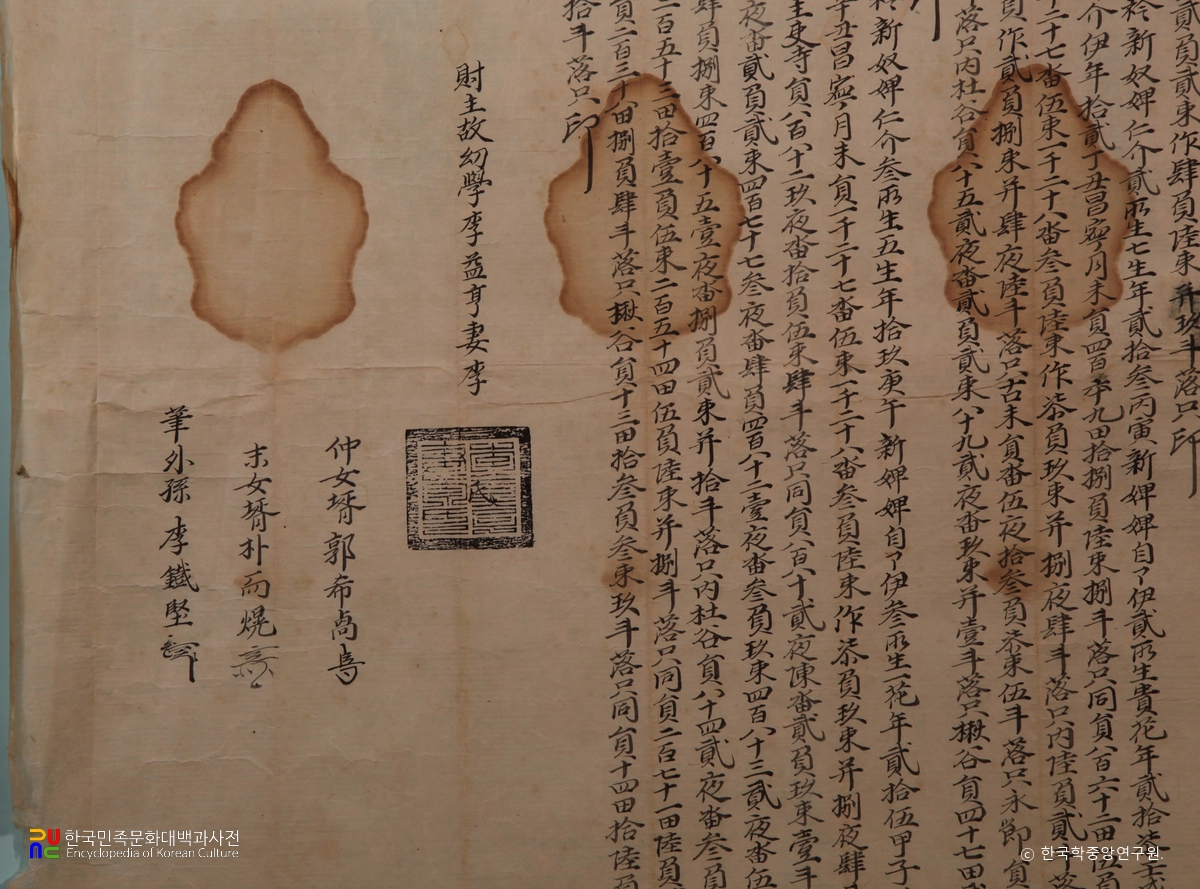 貳負貳束作肆負 幷玖斗落只印
衿新奴婢仁介貳所生七生年貳拾叄丙寅新婢婢自了伊貳所生貴花年貳拾柒
介伊年拾貳丁丑昌寧月未員四百 九田拾捌負陸束捌斗落只同員八百六十二田伍負
二十七畓伍束一千二十八畓叄負陸束作柒負玖束幷捌夜肆斗落只內陸負貳
員作貳負捌束幷肆夜陸斗落只古未員畓伍夜拾叄負柒束伍斗落只永郞員
落只內杜谷員八十五貳夜畓貳負貳束八十九貳夜畓玖束幷壹斗落只楸谷員四十七田
衿新奴婢仁介叄所生五生年拾玖庚午新婢婢自了伊叄所生一花年貳拾伍甲子
辛丑昌寧月未員一千二十七畓伍束一千二十八畓叄負陸束作柒負玖束幷捌夜肆
主吏寺員六百八十二玖夜畓拾負伍束肆斗落只同員六百十貳夜陳畓貳負玖束壹斗
夜畓貳負貳束四百七十七叄夜畓肆負四百八十二壹夜畓叄負玖束四百八十三貳夜畓伍
肆負捌束四百八十五壹夜畓捌負貳束幷拾斗落只內杜谷員八十四貳夜畓叄負
二百五十三田拾壹負伍束二百五十四田伍負陸束幷捌斗落只同員二百七十一田陸負
員二百三十八田捌負肆斗落只楸谷員十三田拾叄負叄束玖斗落只同員十四田拾陸負
拾斗落只印
財主故幼學李益亨妻李
仲女壻郭希卨
末女壻朴而熀
筆外孫李鐵堅
한국민족문화대백과사전
Encyclopedia of Korean Culture
© 한국학중앙연구원.